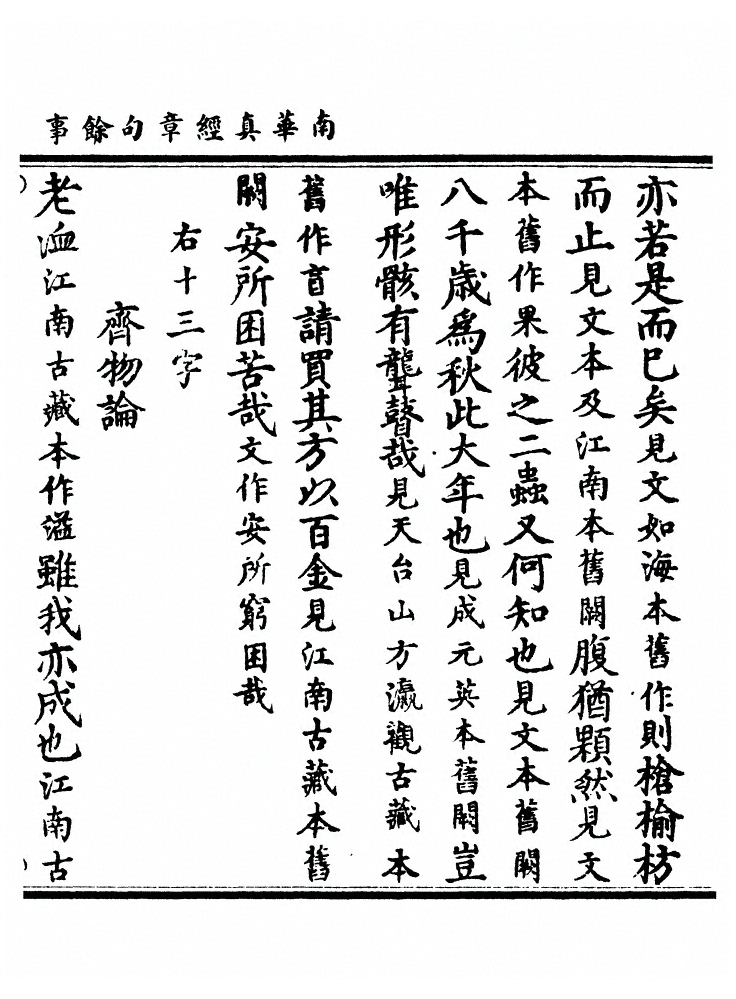 南華真經章句餘事
亦若是而已矣見文如海本舊作則槍榆枋
而止見文本及江南本舊闕腹猶顆然見文
本舊作果彼之二蟲又何知也見文本舊闕
八千歲爲秋此大年也見成元英本舊闕豈
唯形骸有聾瞽哉見天台山方瀛觀古藏本
舊作盲請買其方以百金見江南古藏本舊
闕安所困苦哉文作安所窮困哉
右十三字
齊物論
老洫江南古藏本作溢雖我亦成也江南古